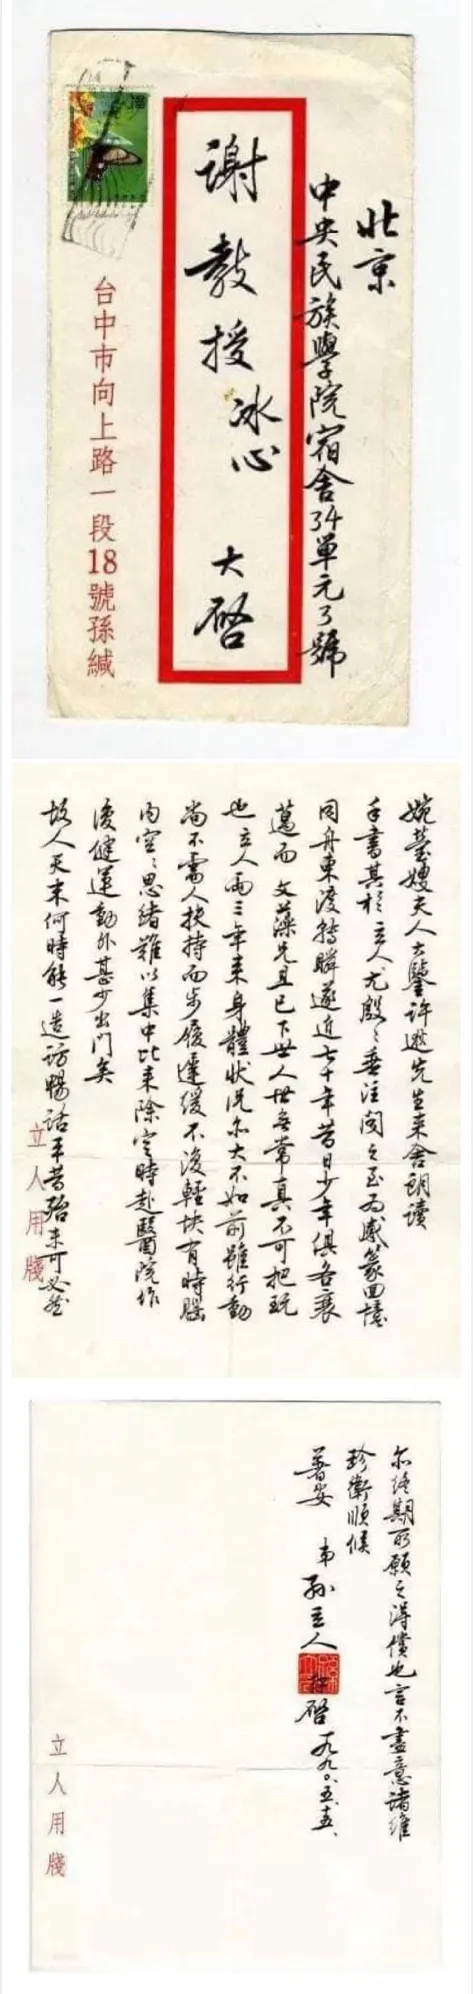 北京
中央民族學院宿舍34單元3號
謝教授冰心 大啓
台中市向上路一段18號孫緘
婉瑩嫂夫人大鑒許遯先生來舍朗讀
手書其於立人尤殷〻垂注聞之至為感篆回憶
同舟東渡轉瞬遂近七十年昔日少年俱各衰
邁而 文藻兄且已下世人世無常真不可把玩
也立人兩三年來身體狀況亦大不如前雖行動
尚不需人扶持而步履遲緩不復輕快有時腦
內空〻思緒難以集中比來除定時赴醫院作
復健運動外甚少出門矣
故人天末何時能一造訪暢話平昔殆未可必然
立人用牋
亦終期所願之得償也言不盡意諸維
珍衛順候
著安
弟孫立人 啓 一九九〇、五、五、
立人用牋